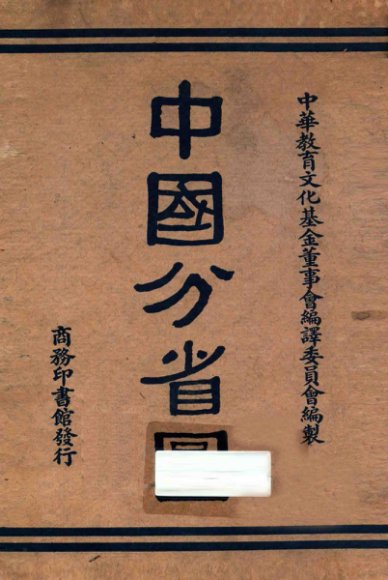 中華教育文化基金董事會編譯委員會編製
中國分省
商務印書館發行